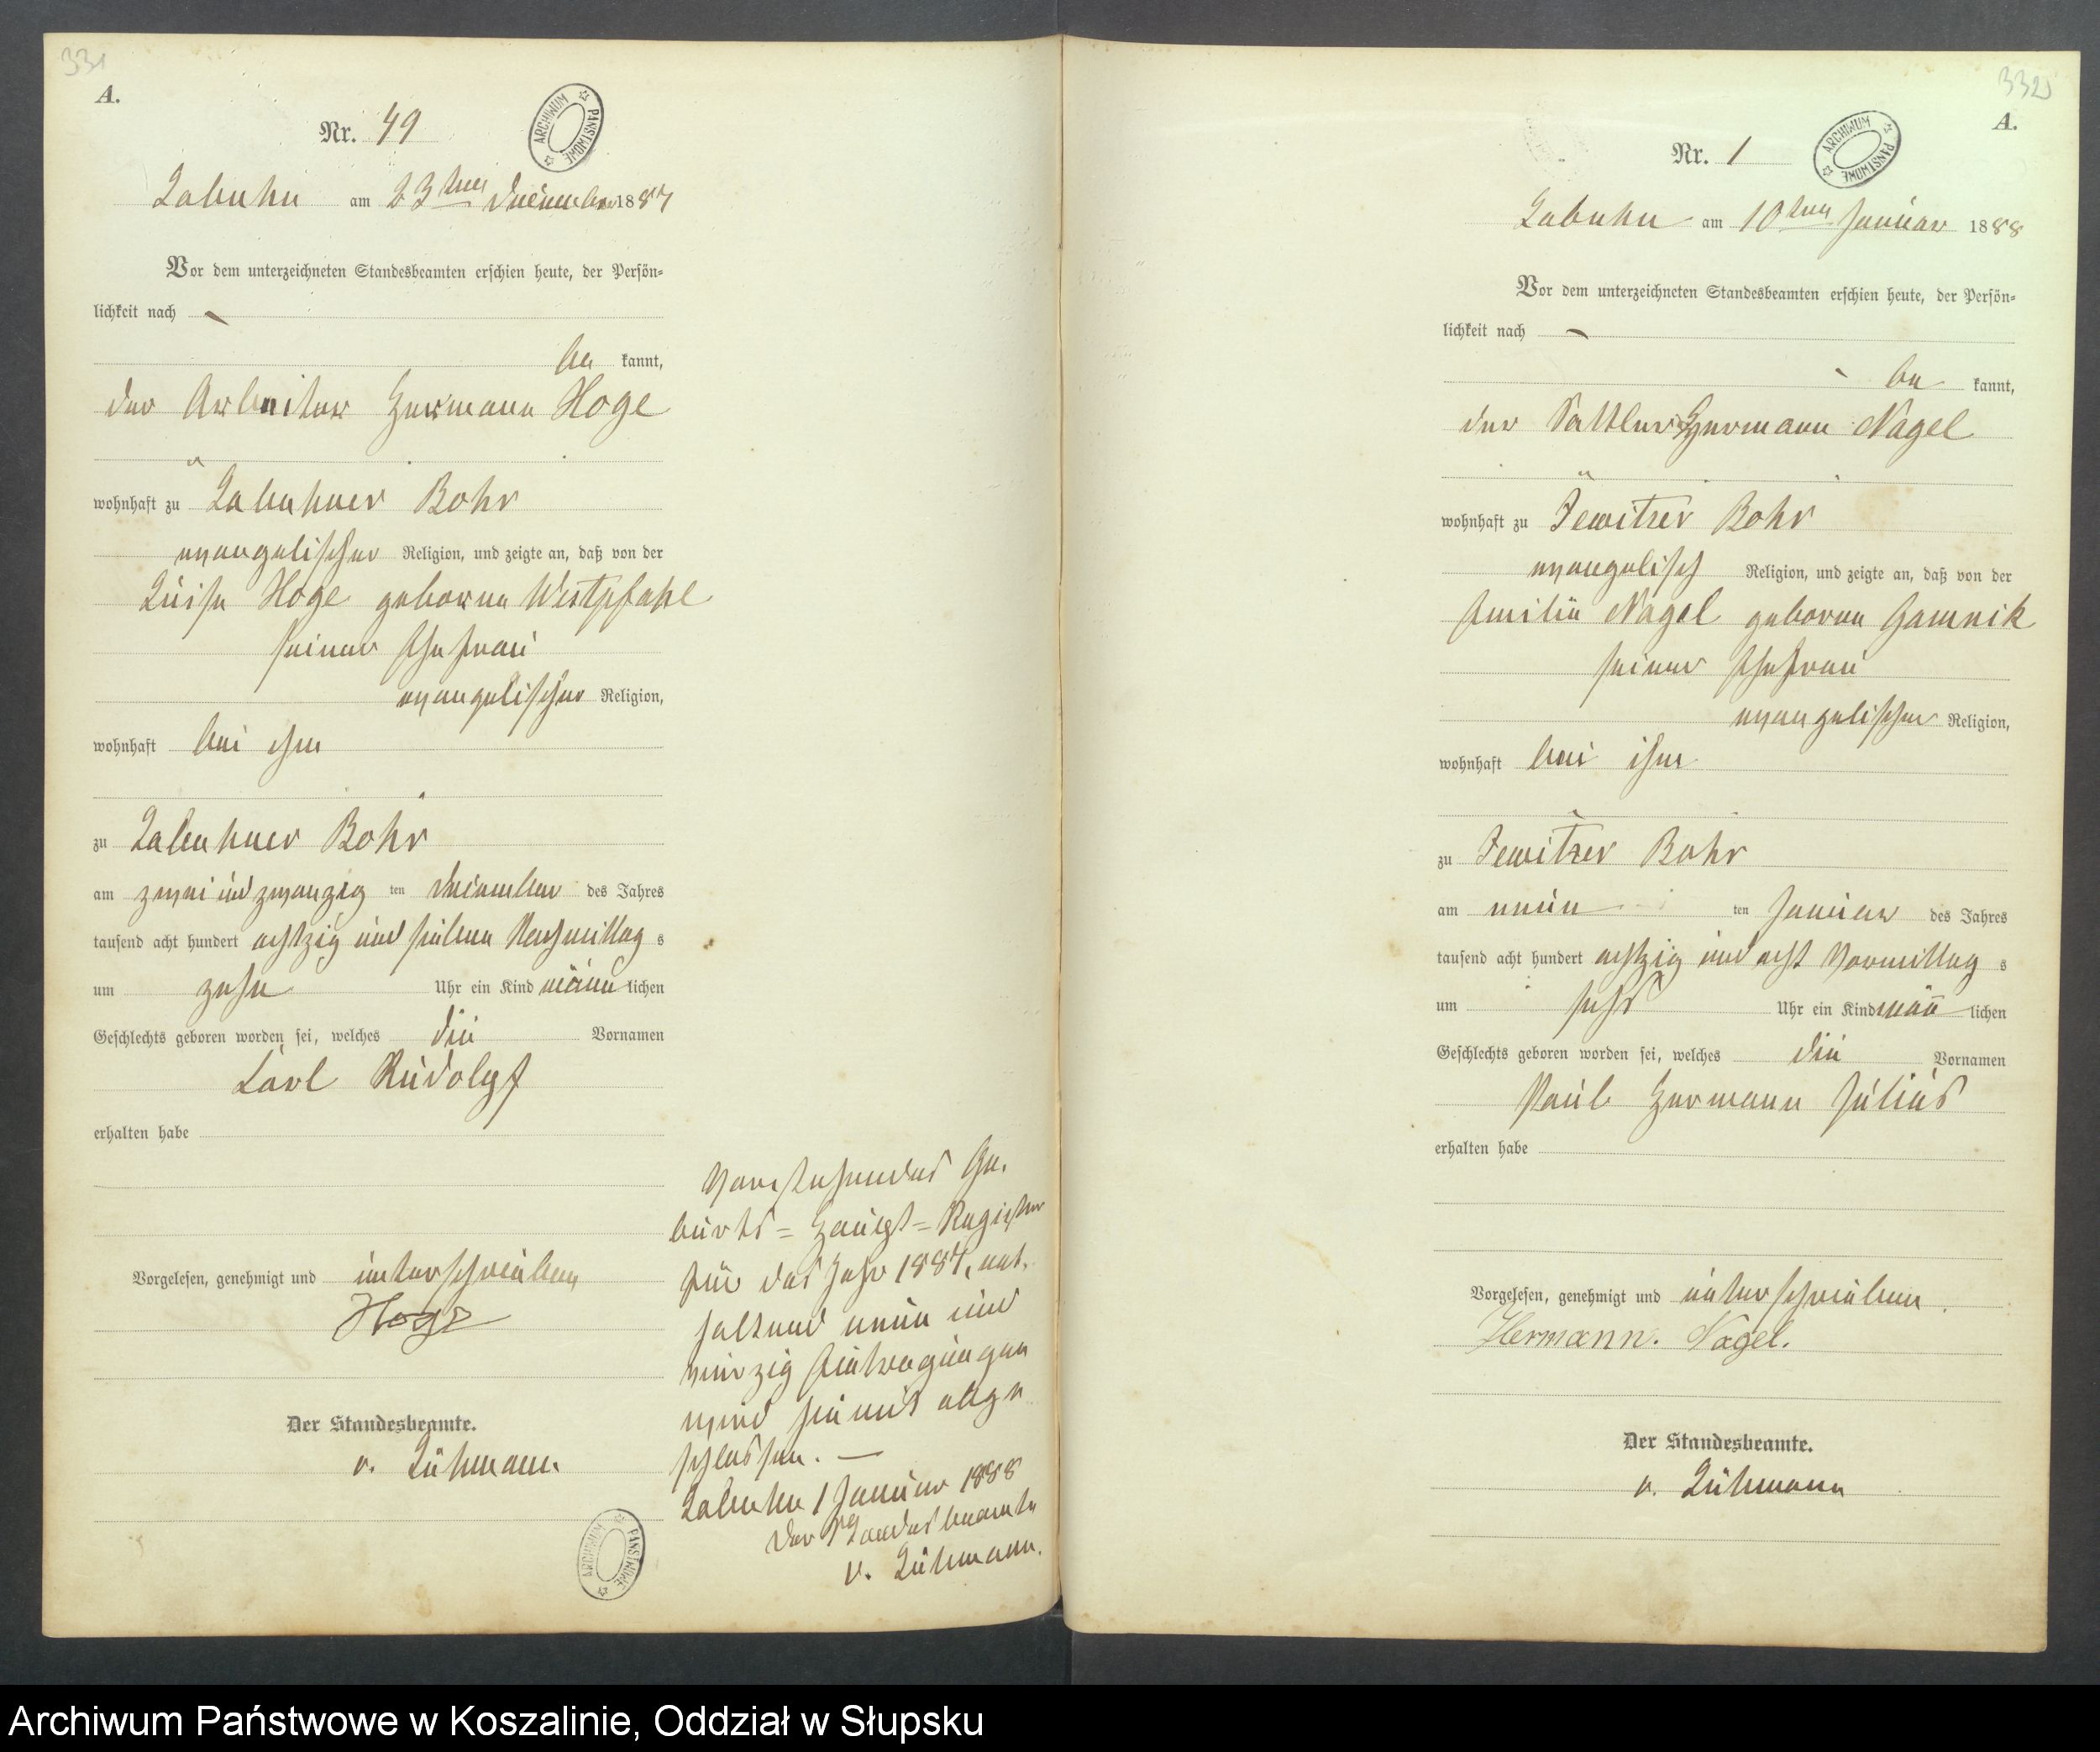 331
A.
Nr. 49
ARCHIWUM PAŃSTWOWE
Labuhn am 23ten Dezember 1887
Vor dem unterzeichneten Standesbeamten erschien heute, der Persön-
lichkeit nach
be kannt,
der Arbeiter Hermann Hoge
wohnhaft zu Labuhner Bohr
evangelischer Religion, und zeigte an, daß von der
Luise Hoge geborne Westpfahl
seiner Ehefrau
evangelischer Religion,
wohnhaft bei ihm
zu Labuhner Bohr
am zwei und zwanzig ten Dezember des Jahres
tausend acht hundert achtzig und sieben Nachmittag s
um zehn Uhr ein Kind männ lichen
Geschlechts geboren worden sei, welches die Vornamen
Carl Rudolph
erhalten habe
Vorgelesen, genehmigt und unterschrieben
Hoge
Der Standesbeamte.
v. Lühmann
ARCHIWUM PAŃSTWOWE
Vorstehendes Ge-
burts=Haupt=Register
für das Jahr 1887, ent-
haltend neun und
vierzig Eintragungen
wird hiermit abge
schlossen. —
Labuhn 1 Januar 1888
Der Standesbeamte
v. Lühmann.
332
A.
Nr. 1
ARCHIWUM PAŃSTWOWE
Labuhn am 10ten Januar 1888
Vor dem unterzeichneten Standesbeamten erschien heute, der Persön-
lichkeit nach
be kannt,
der Sattler Hermann Nagel
wohnhaft zu Jewitzer Bohr
evangelisch Religion, und zeigte an, daß von der
Emilie Nagel geborne Gamnik
seiner Ehefrau
evangelischer Religion,
wohnhaft bei ihm
zu Jewitzer Bohr
am neun ten Januar des Jahres
tausend acht hundert achtzig und acht Vormittag s
um sechs Uhr ein Kind männ lichen
Geschlechts geboren worden sei, welches die Vornamen
Paul Hermann Julius
erhalten habe
Vorgelesen, genehmigt und unterschrieben.
Hermann. Nagel.
Der Standesbeamte.
v. Lühmann
Archiwum Państwowe w Koszalinie, Oddział w Słupsku